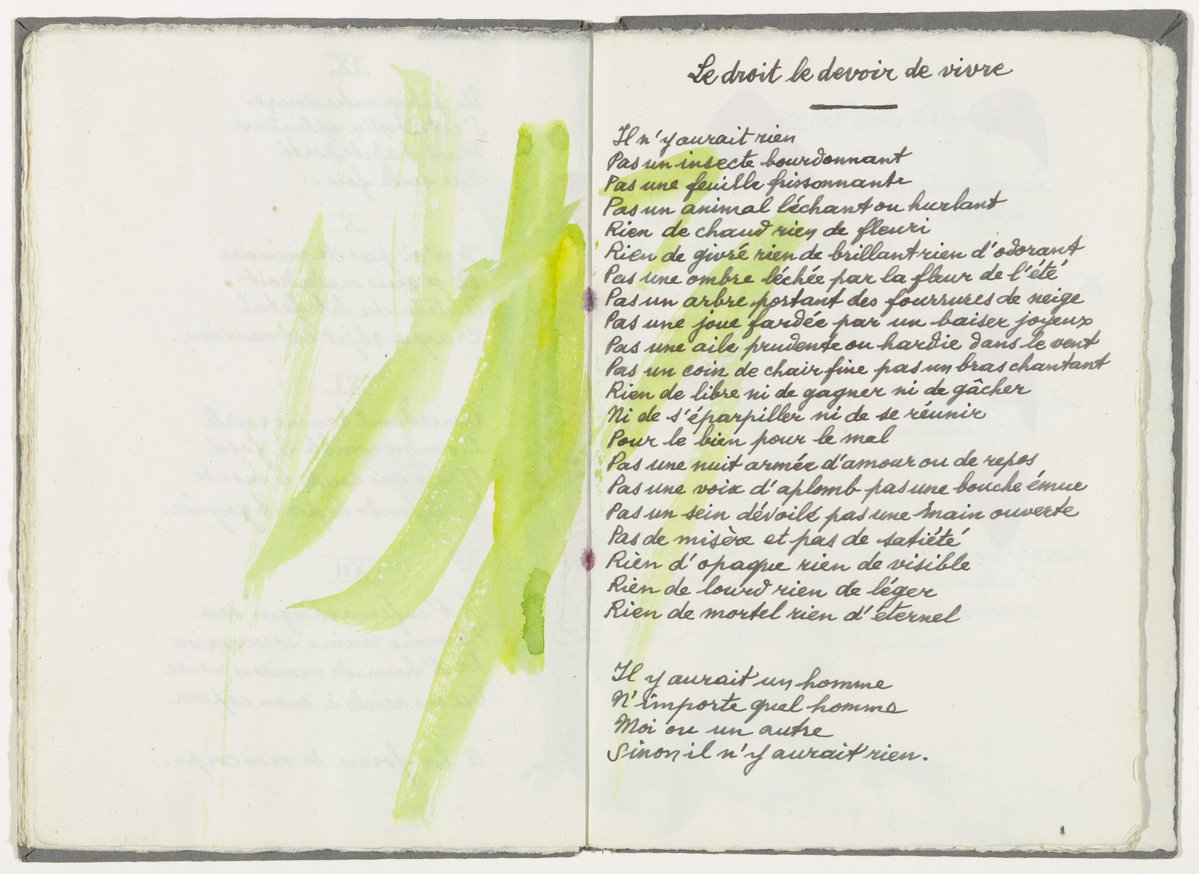 Le droit le devoir de vivre
Il n'y aurait rien
Pas un insecte bourdonnant
Pas une feuille frissonnante
Pas un animal léchant ou hurlant
Rien de chaud rien de fleuri
Rien de givré rien de brillant rien d'odorant
Pas une ombre léchée par la fleur de l'été
Pas un arbre portant des fourrures de neige
Pas une joue fardée par un baiser joyeux
Pas une aile prudente ou hardie dans le vent
Pas un coin de chair fine pas un bras chantant
Rien de libre ni de gagner ni de gâcher
Ni de s'éparpiller ni de se réunir
Pour le bien pour le mal
Pas une nuit armée d'amour ou de repos
Pas une voix d'aplomb pas une bouche émue
Pas un sein dévoilé pas une main ouverte
Pas de misère et pas de satiété
Rien d'opaque rien de visible
Rien de lourd rien de léger
Rien de mortel rien d'éternel
Il y aurait un homme
N'importe quel homme
Moi ou un autre
Sinon il n'y aurait rien.